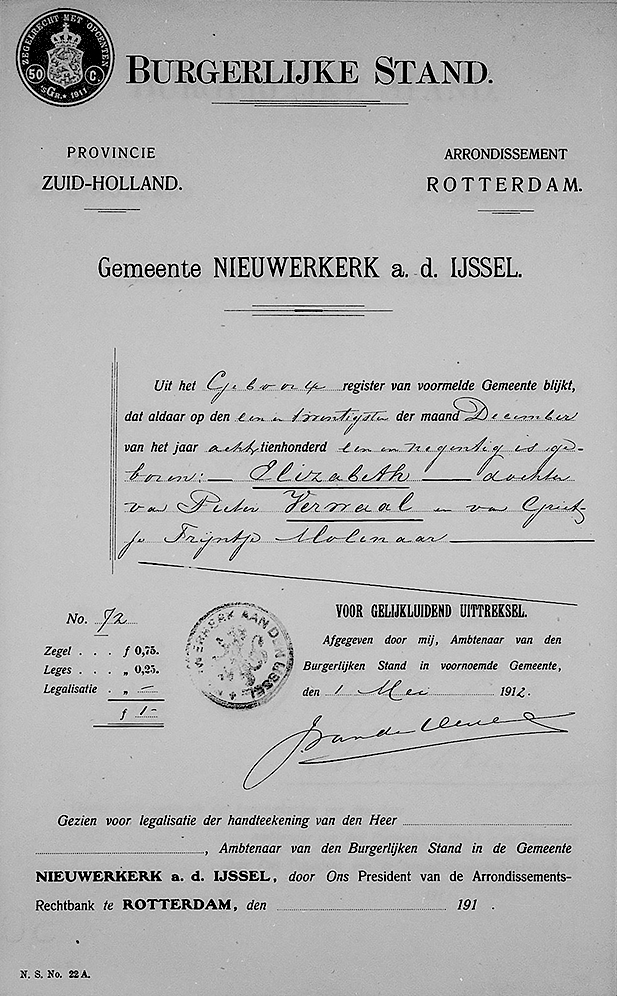 ZEGELRECHT MET OPCENTEN
50 C.
'sGR. * 1911
BURGERLIJKE STAND.
PROVINCIE
ZUID-HOLLAND.
ARRONDISSEMENT
ROTTERDAM.
Gemeente NIEUWERKERK a. d. IJSSEL.
Uit het Geboorte register van voormelde Gemeente blijkt,
dat aldaar op den een en twentigsten der maand December
van het jaar achttienhonderd een en negentig is ge-
boren: — Elizabeth — dochter
van Pieter Verwaal en van Griet-
je Trijntje Molenaar —
No. 72
Zegel . . . f 0,75.
Leges . . . „ 0,25.
Legalisatie . „ —
f 1—
NIEUWERKERK AAN DEN IJSSEL
VOOR GELIJKLUIDEND UITTREKSEL.
Afgegeven door mij, Ambtenaar van den
Burgerlijken Stand in voornoemde Gemeente,
den 1 Mei 1912.
Gezien voor legalisatie der handteekening van den Heer
, Ambtenaar van den Burgerlijken Stand in de Gemeente
NIEUWERKERK a. d. IJSSEL, door Ons President van de Arrondissements-
Rechtbank te ROTTERDAM, den 191 .
N. S. No. 22 A.